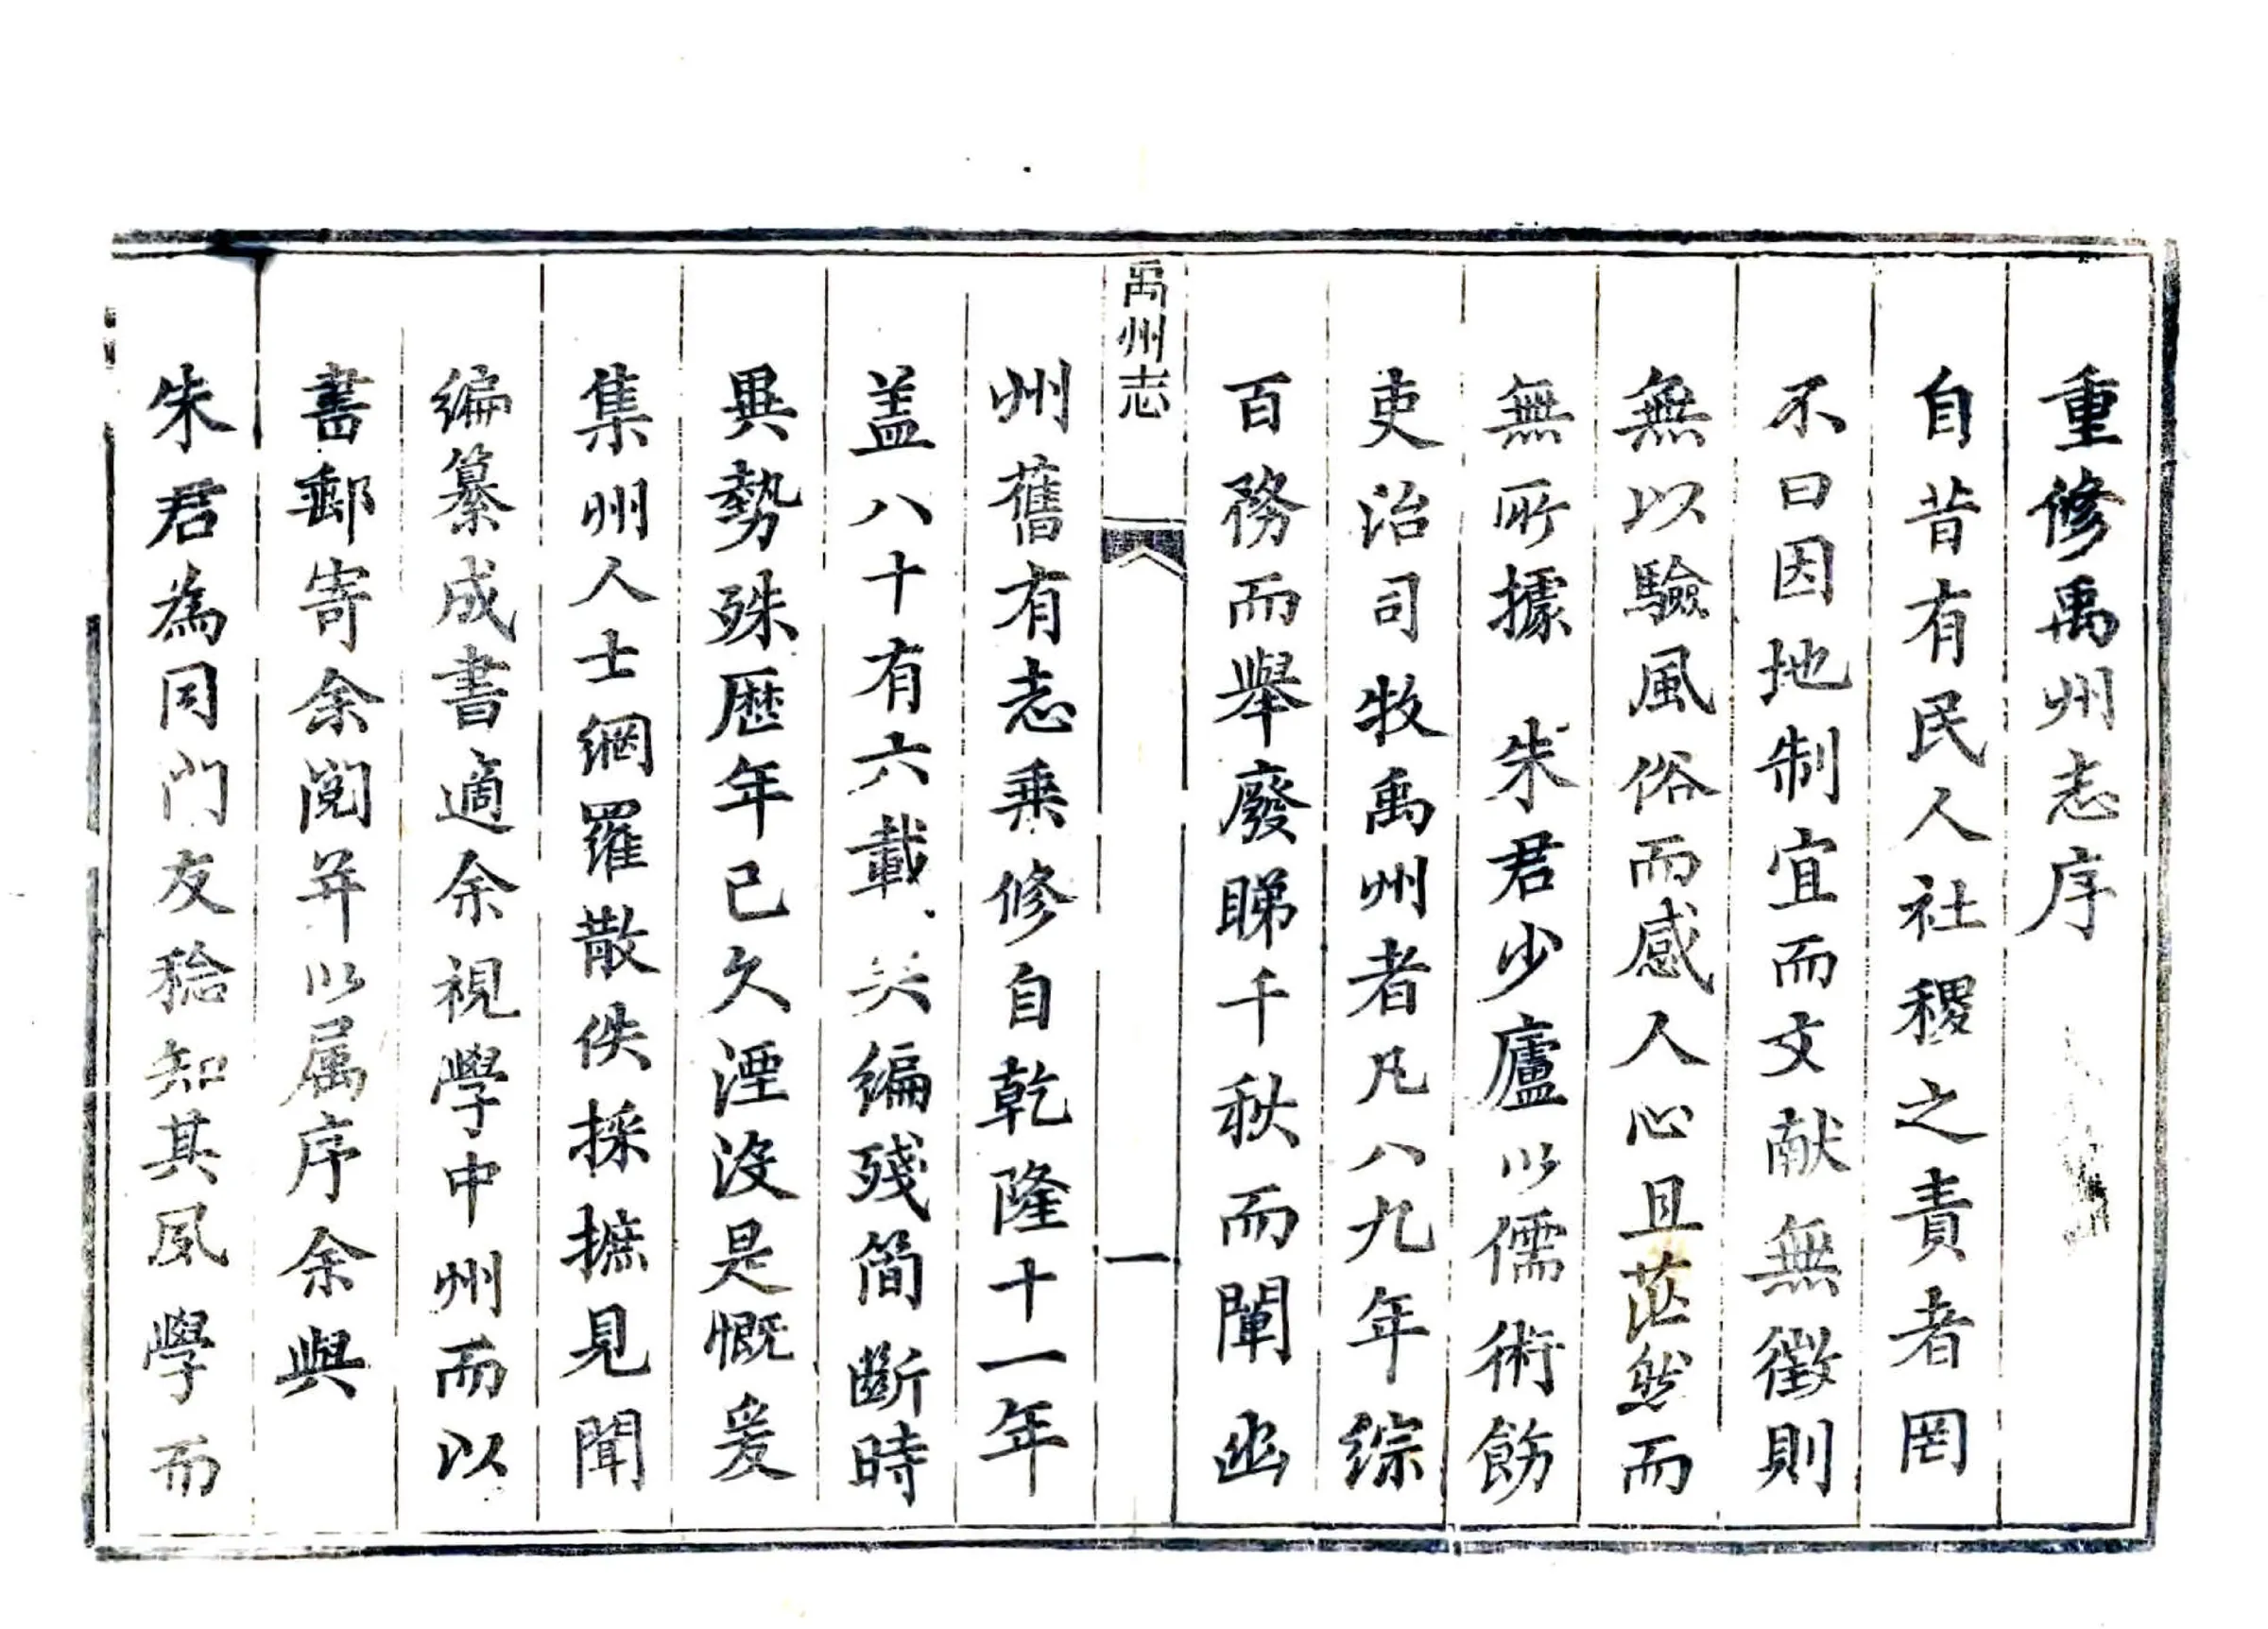 重修禹州志序
自昔有民人社稷之責者罔
不曰因地制宜而文献無徵則
無以驗風俗而感人心且茫然而
無所據 朱君少廬以儒術飭
吏治司牧禹州者凡八九年綜
百務而舉廢睇千秋而闡幽
禹州志
一
州舊有志乗修自乾隆十一年
盖八十有六載矣编殘簡斷時
異勢殊歴年已久湮没是慨爰
集州人士網羅散佚採摭見聞
编纂成書適余視學中州而以
書郵寄余閲并以属序余與
朱君為同門友稔知其夙學而